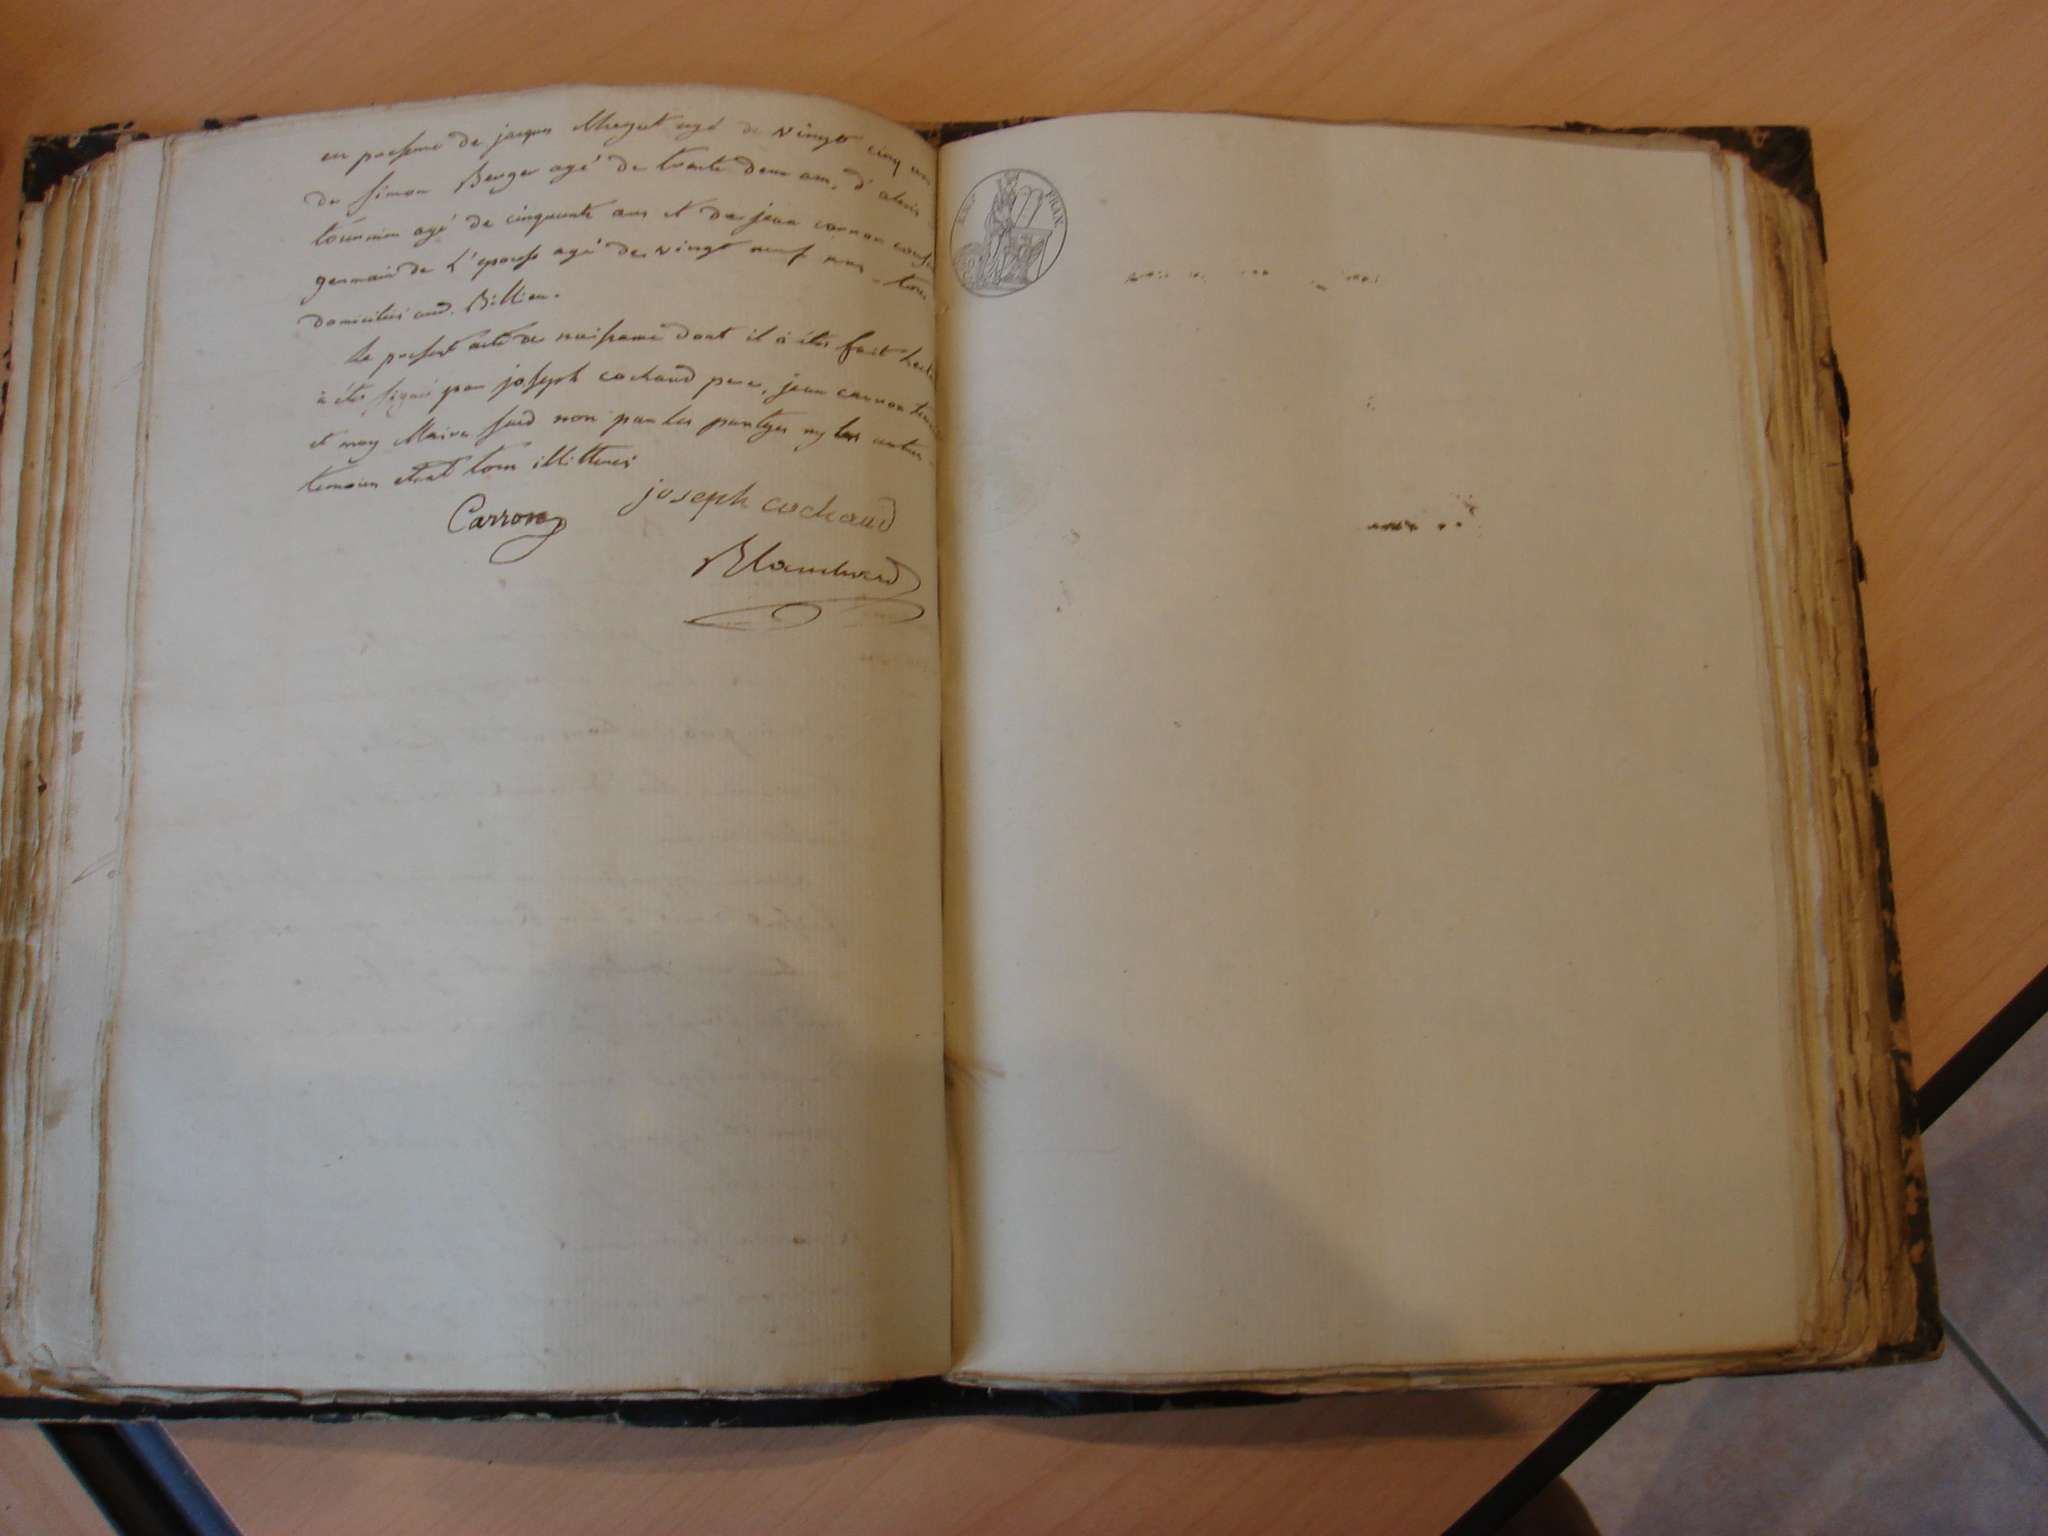 en presence de jacques Megat agé de vingt cinq ans
de simon Berger agé de trante deux ans, d'alexis
tournier agé de cinquante ans et de jean carron cousin
germain de L'epouse agé de vingt neuf ans tous
domiciliés aud. Billieu.
Le present acte de naissance dont il à étés fait lecture
à étés signé par joseph cochaud pere, jean carron temoin
et moy Maire sued non par les partyes ny les autres
temoins etant tous illitterés
Carron joseph cochaud
Blanchard
FRAN